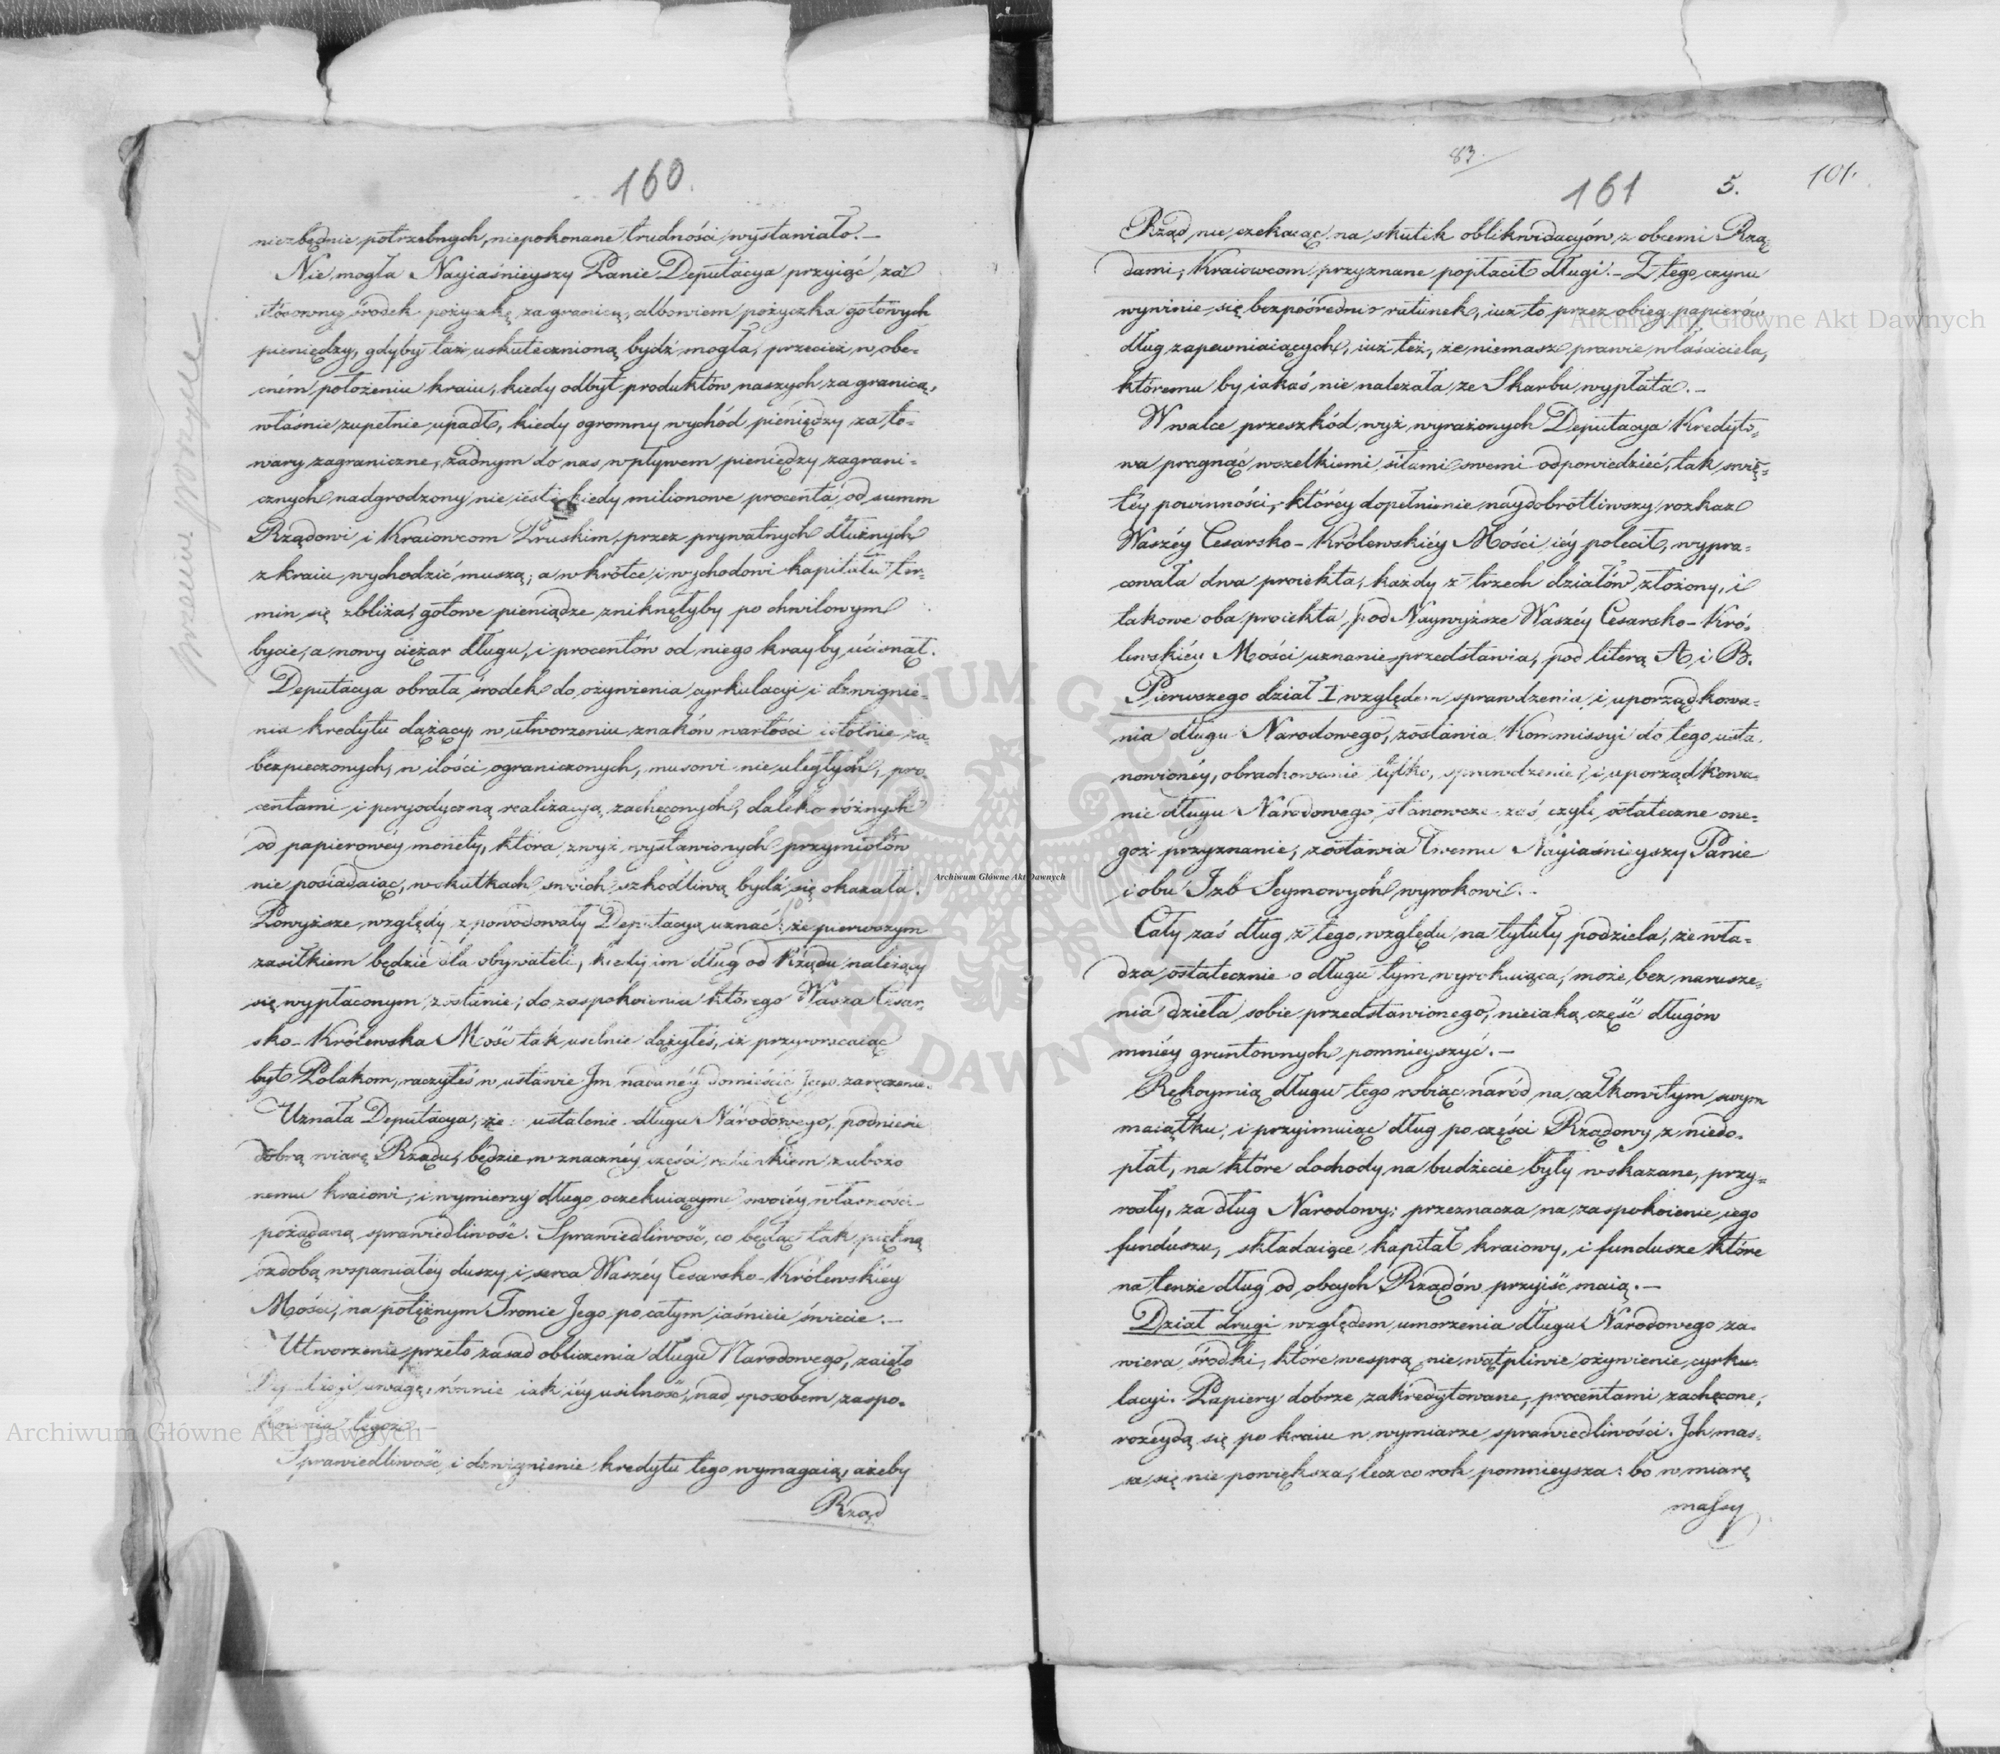 160.
niezbędnie potrzebnych, niepokonane trudności wystawiało.—
Nie mogła Nayiaśnieyszy Panie Deputacya przyiąć za
stósowny środek pożyczkę zagranicą, albowiem pożyczka gotowych
pieniędzy, gdyby taż uskutecznioną bydź mogła, przecież w obe-
cném położeniu kraiu, kiedy odbyt produktów naszych za granicą,
właśnie zupełnie upadł, kiedy ogromny wychód pieniędzy za to-
wary zagraniczne, żadnym do nas wpływem pieniędzy zagrani-
cznych nadgrodzony nie iest, kiedy milionowe procenta od summ
Rządowi i Kraiowcom Pruskim, przez prywatnych dłużnych
z kraiu wychodzić muszą; a wkrótce i wychodowi kapitału ter-
min się zbliża, gotowe pieniądze zniknęłyby po chwilowym
bycie, a nowy ciężar długu, i procentów od niego krayby ucisnął.
Deputacya obrała środek do ożywienia cyrkulacyi i dzwignie-
nia kredytu dążący, w utworzeniu znaków wartości istotnie za-
bezpieczonych, w ilości ograniczonych, musowi nie uległych, pro-
centami i peryodyczną realizacyą zachęconych, daleko różnych
od papierowéy monety, która zwyż wystawionych przymiotów
nie posiadaiąc, w skutkach swoich szkodliwą bydź się okazała.
Powyższe względy zpowodowały Deputacyą uznać: że pierwszym
zasiłkiem będzie dla obywateli, kiedy im dług od Rządu należący
się wypłaconym zostanie; do zaspokoienia którego Wasza Cesar-
sko-Królewska Mość tak usilnie dążyłeś, iż przywracaiąc
byt Polakom, raczyłeś w ustawie Im nadanéy domieścić Jego zaręczenie.
Uznała Deputacya, że ustalenie długu Narodowego, podniesie
dobrą wiarę Rządu, będzie w znacznéy części ratunkiem zubożo
nemu kraiowi, i wymierzy długo oczekuiącym swoiéy własności
pożądaną sprawiedliwość. Sprawiedliwość, co będąc tak piękną
ozdobą wspaniałéy duszy i serca Waszéy Cesarsko-Królewskiéy
Mości, na potężnym Tronie Jego po całym iaśnieie świecie.—
Utworzenie przeto zasad obliczenia długu Narodowego, zaięło
Deputacyi uwagę, równie iak iéy usilność, nad sposobem zaspo-
koienia tegoż.—
Sprawiedliwość, i dzwignienie kredytu tego wymagaią, ażeby
Rząd
83.
161
5.
101.
Rząd nie czekaiąc na skutek oblikwidacyów z obcemi Rzą-
dami, Kraiowcom przyznane popłacił długi.— Z tego czynu
wyninie się bezpośrednio ratunek, iuż to przez obieg papierów
dług zapewniaiących, iuż też, że niemasz prawie właściciela,
któremu by iakaś nie należała ze Skarbu wypłata.—
W walce przeszkód wyż wyrażonych Deputacya Kredyto-
wa pragnąć wszelkiemi siłami swemi odpowiedzieć, tak świę-
téy powinności, któréy dopełnienie naydobrotliwszy rozkaz
Waszéy Cesarsko-Królewskiéy Mości iéy polecił, wypra-
cowała dwa proiekta, każdy z trzech działów złożony, i
takowe oba proiekta, pod Naywyższe Waszéy Cesarsko-Kró-
lewskiéy Mości uznanie przedstawia, pod literą A, i B.
Pierwszego dział I względem sprawdzenia i uporządkowa-
nia długu Narodowego, zostawia Kommissyi do tego usta-
nowionéy, obrachowanie tylko, sprawdzenie, i uporządkowa-
nie długu Narodowego, stanowcze zaś, czyli ostateczne one-
goż przyznanie, zostawia Twemu Nayiaśnieyszy Panie
i obu Izb Seymowych wyrokowi.—
Cały zaś dług z tego względu na tytuły podziela, że wła-
dza ostatecznie o długu tym wyrokuiąca, może bez narusze-
nia dzieła sobie przedstawionego, nieiaką część długów
mniéy gruntownych pomnieyszyć.—
Rękoymią długu tego robiąc naród na całkowitym swym
maiątku, i przyimuiąc dług po części Rządowy z niedo-
płat, na które dochody na budżecie były wskazane, przy-
rosły, za dług Narodowy: przeznacza na zaspokoienie iego
fundusze, składaiące kapitał kraiowy, i fundusze które
na tenże dług od obcych Rządów przyiść maią.—
Dział drugi względem umorzenia długu Narodowego za-
wiera środki, które wesprą niewątpliwie ożywienie cyrku-
lacyi. Papiery dobrze zakredytowane, procentami zachęcone,
rozeydą się po kraiu w wymiarze sprawiedliwości. Ich mas-
sa się nie powiększa, lecz co rok pomnieysza: bo w miarę
massy
Archiwum Główne Akt Dawnych